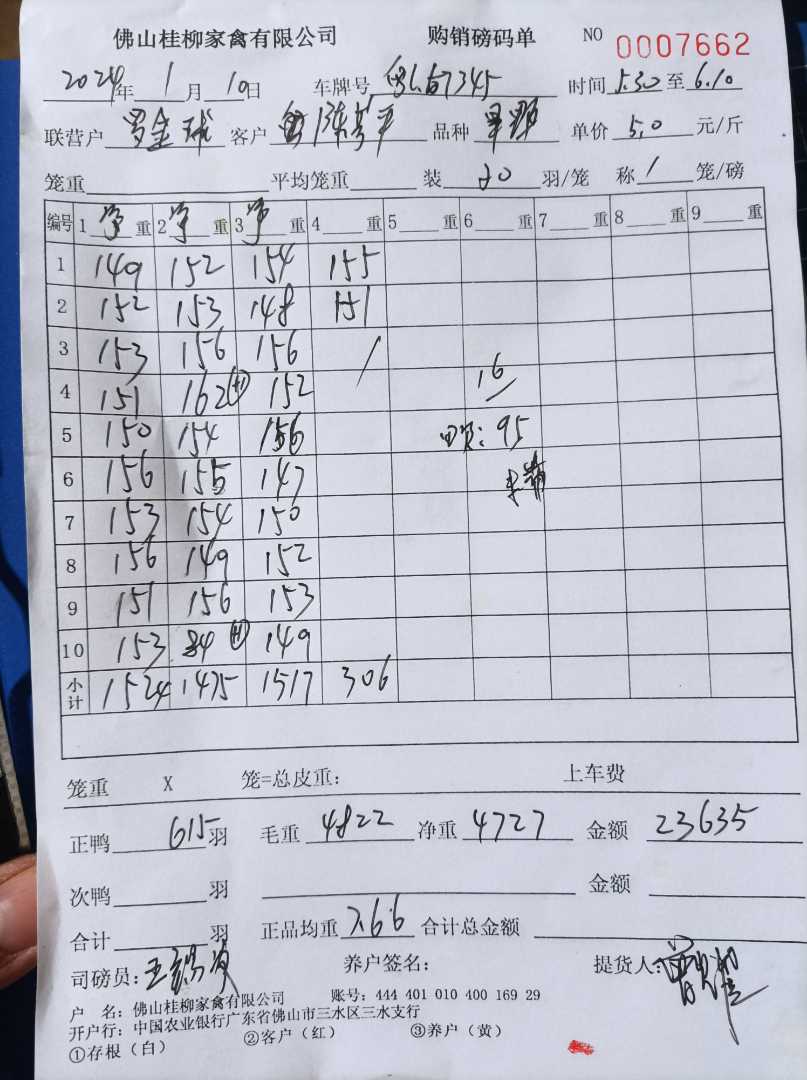 佛山桂柳家禽有限公司 购销磅码单 NO 0007662
2024年 1月 10日 车牌号 67345 时间 5.30 至 6.10
联营户 罗金球 客户 陈 平 品种 单价 5.0 元/斤
笼重 平均笼重 装 20 羽/笼 称 1 笼/磅
编号 1 净 重 2 净 重 3 净 重 4 重 5 重 6 重 7 重 8 重 9 重
1 149 152 154 155
2 152 153 148 151
3 153 156 156 /
4 151 162 (+1) 152 16
5 150 154 156 95
6 156 155 147
7 153 154 150
8 156 149 152
9 151 156 153
10 153 84 149
小计 1524 1475 1517 306
笼重 X 笼=总皮重: 上车费
正鸭 615 羽 毛重 4822 净重 4727 金额 23635
次鸭 羽 金额
合计 羽 正品均重 7.66 合计总金额
司磅员: 王 养户签名: 提货人:
户 名: 佛山桂柳家禽有限公司 账号: 444 401 010 400 169 29
开户行: 中国农业银行广东省佛山市三水区三水支行
①存根(白) ②客户(红) ③养户(黄)